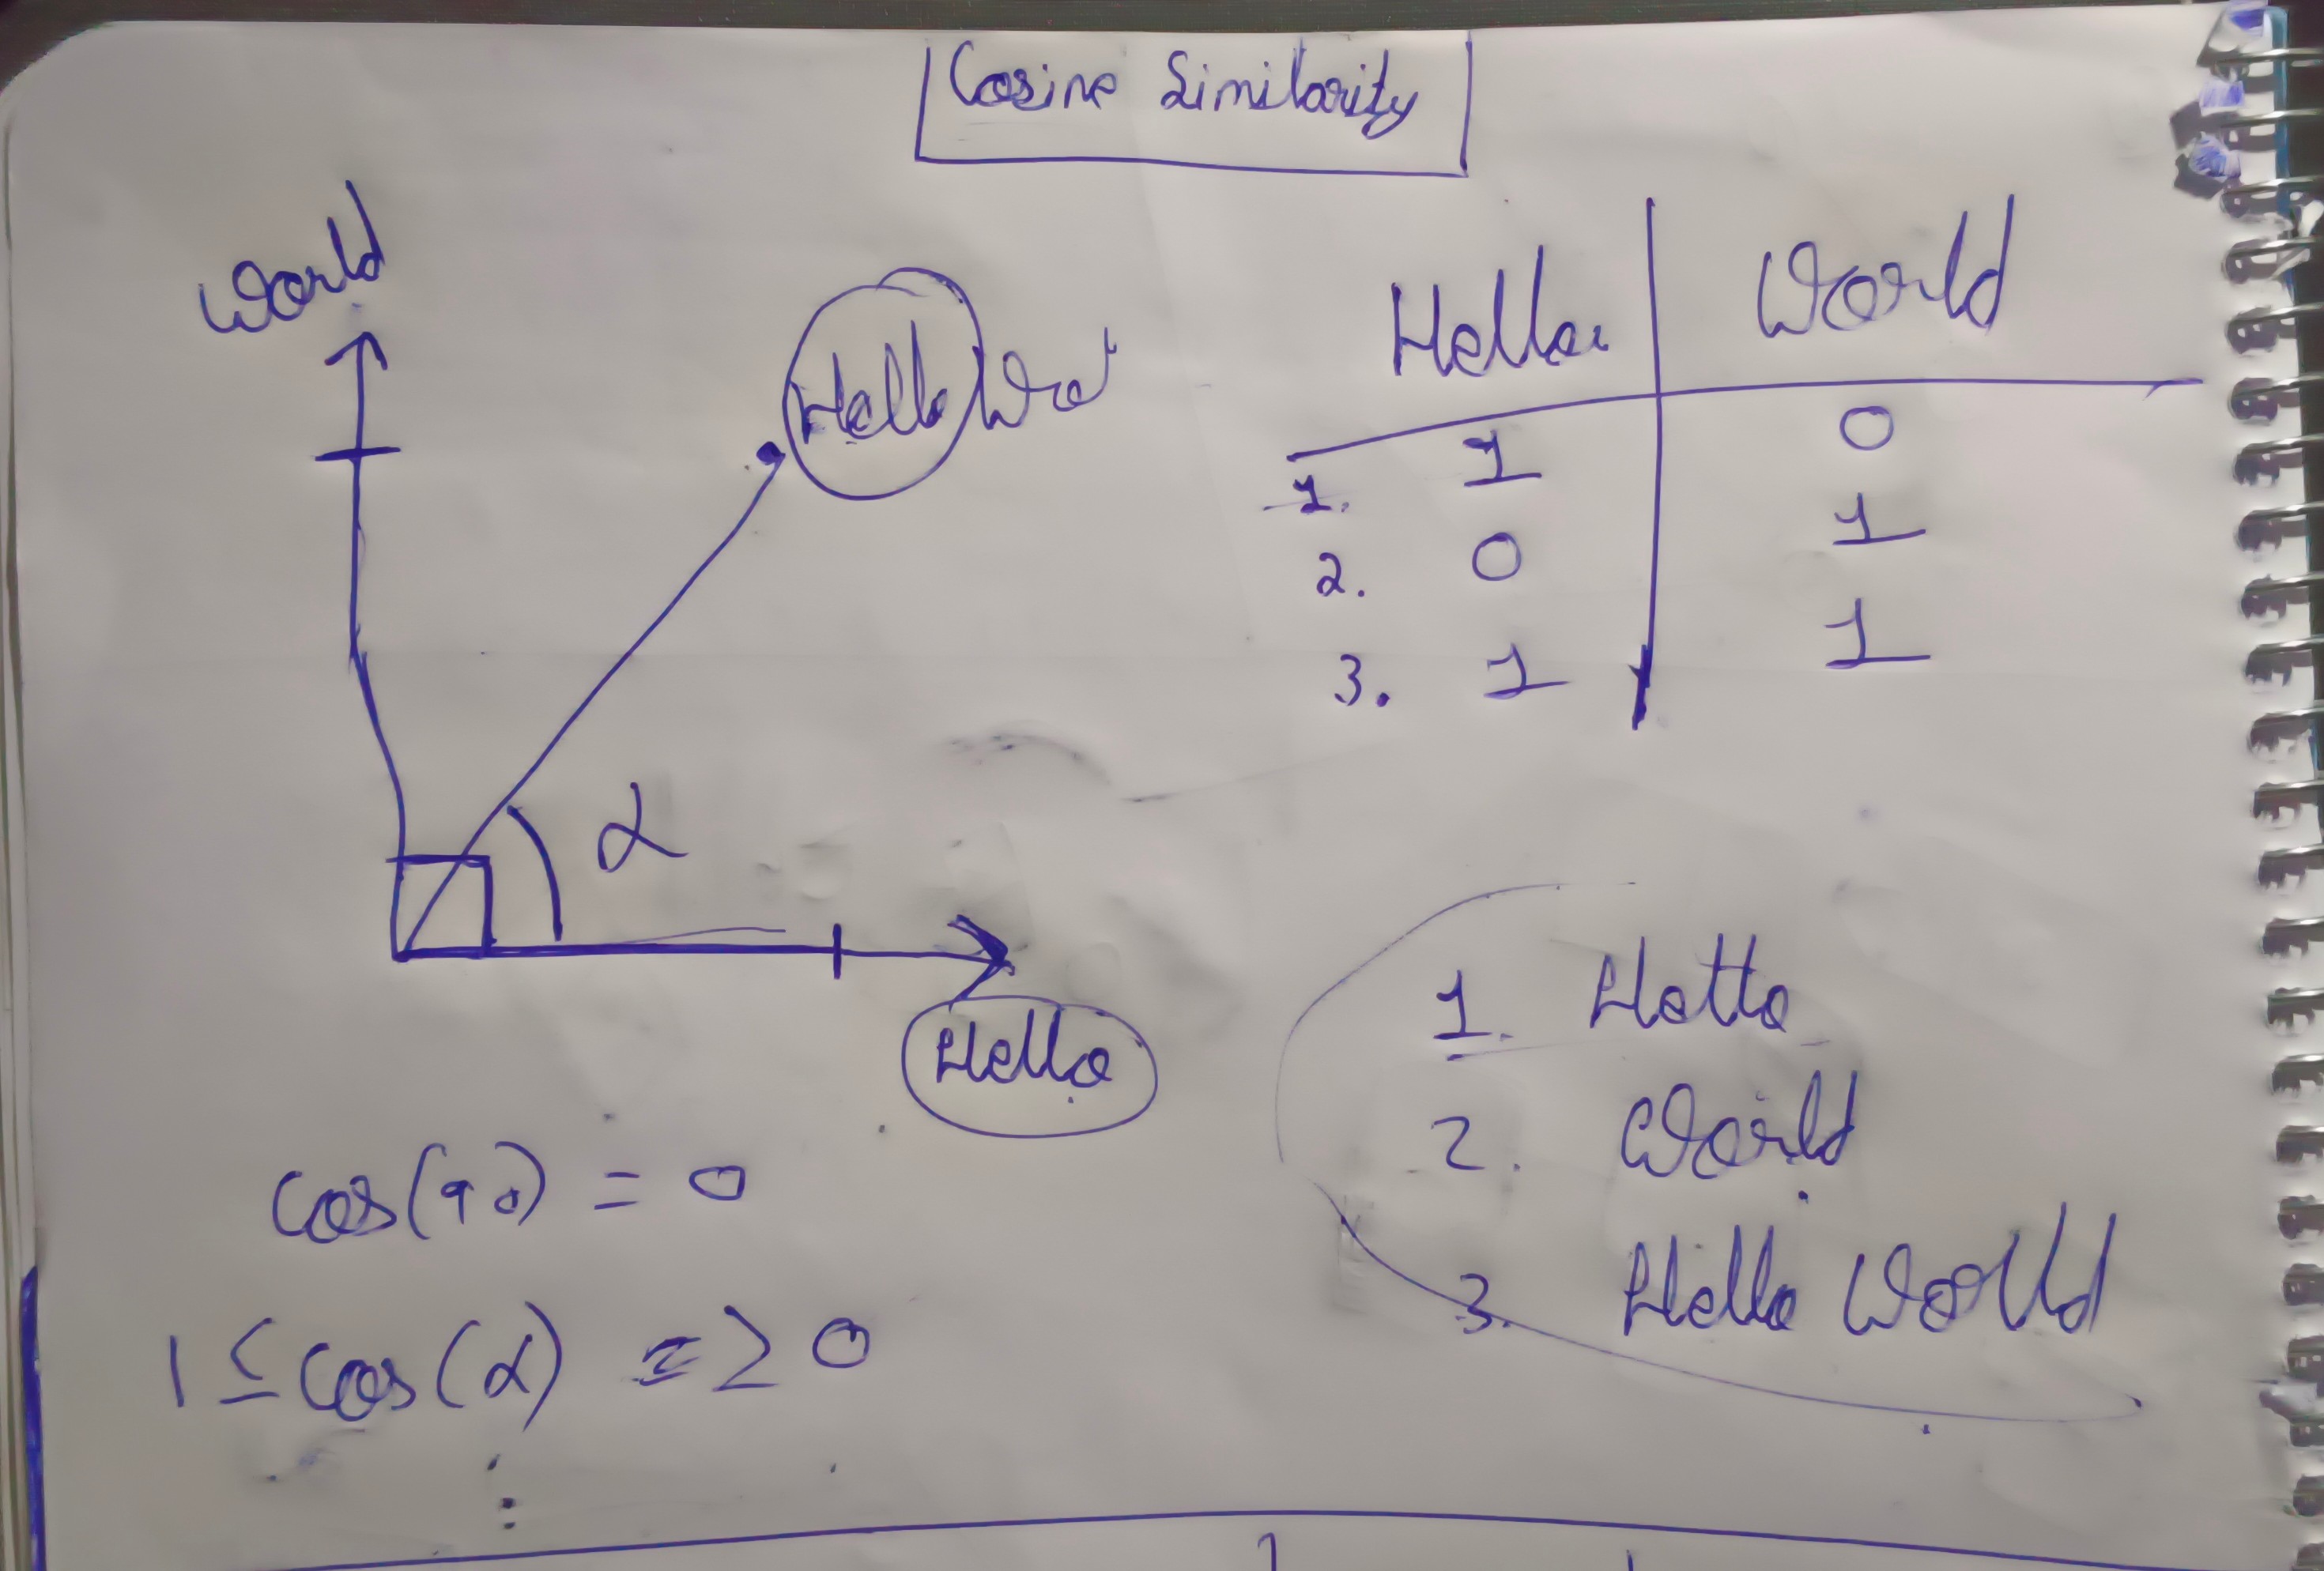 Cosine Similarity
World
Hello
Hello
World
1. 1 0
2. 0 1
3. 1 1
α
Hello
1. Hello
2. World
3. Hello World
cos(90) = 0
1 ≤ cos(α) = ≥ 0